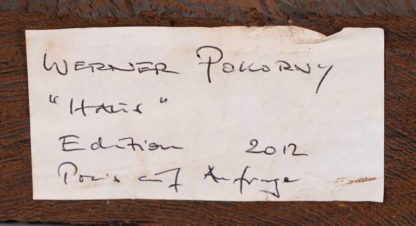 WERNER POKORNY
"HAUS"
Edition 2012
Preis auf Anfrage